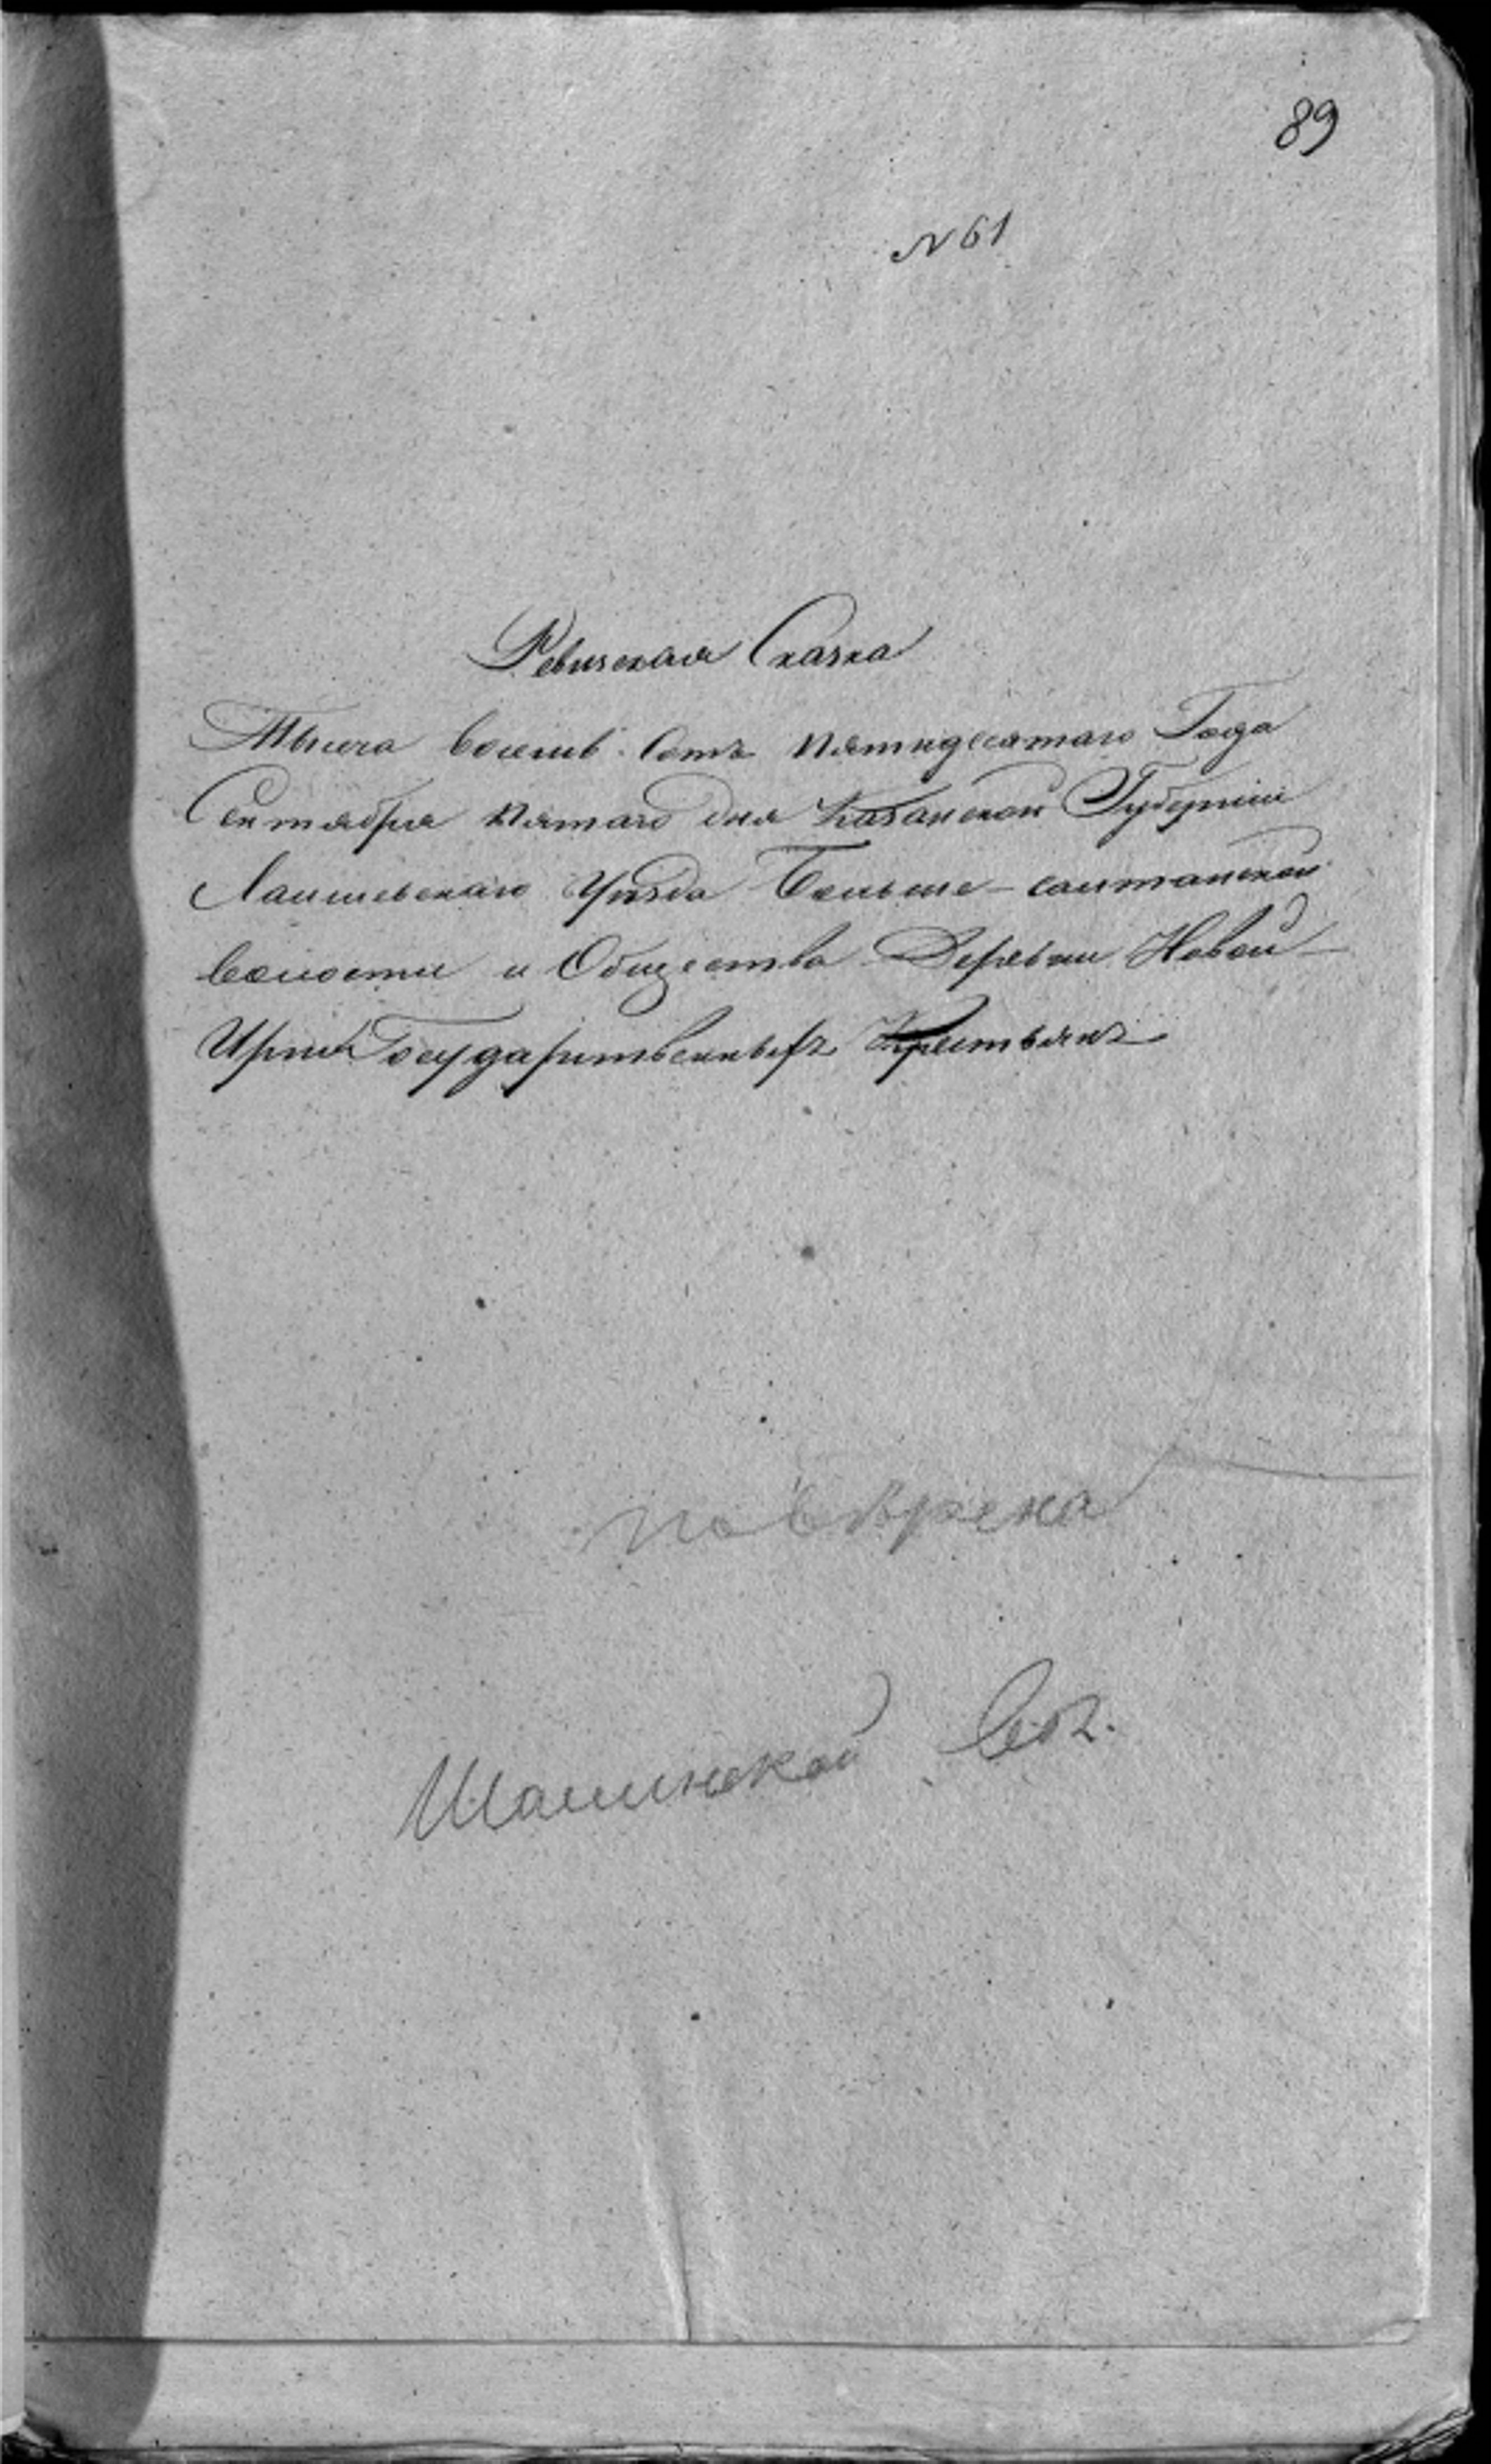 89
N 61
Ревизская Сказка
Тысяча восемь сотъ пятидесятаго Года
Сентября пятаго дня Казанской Губерніи
Лаишевскаго Уѣзда Больше-салтанской
волости и Общества Деревни Новой
Государственныхъ Крестьянъ
повѣрена
Шашинской Вол.